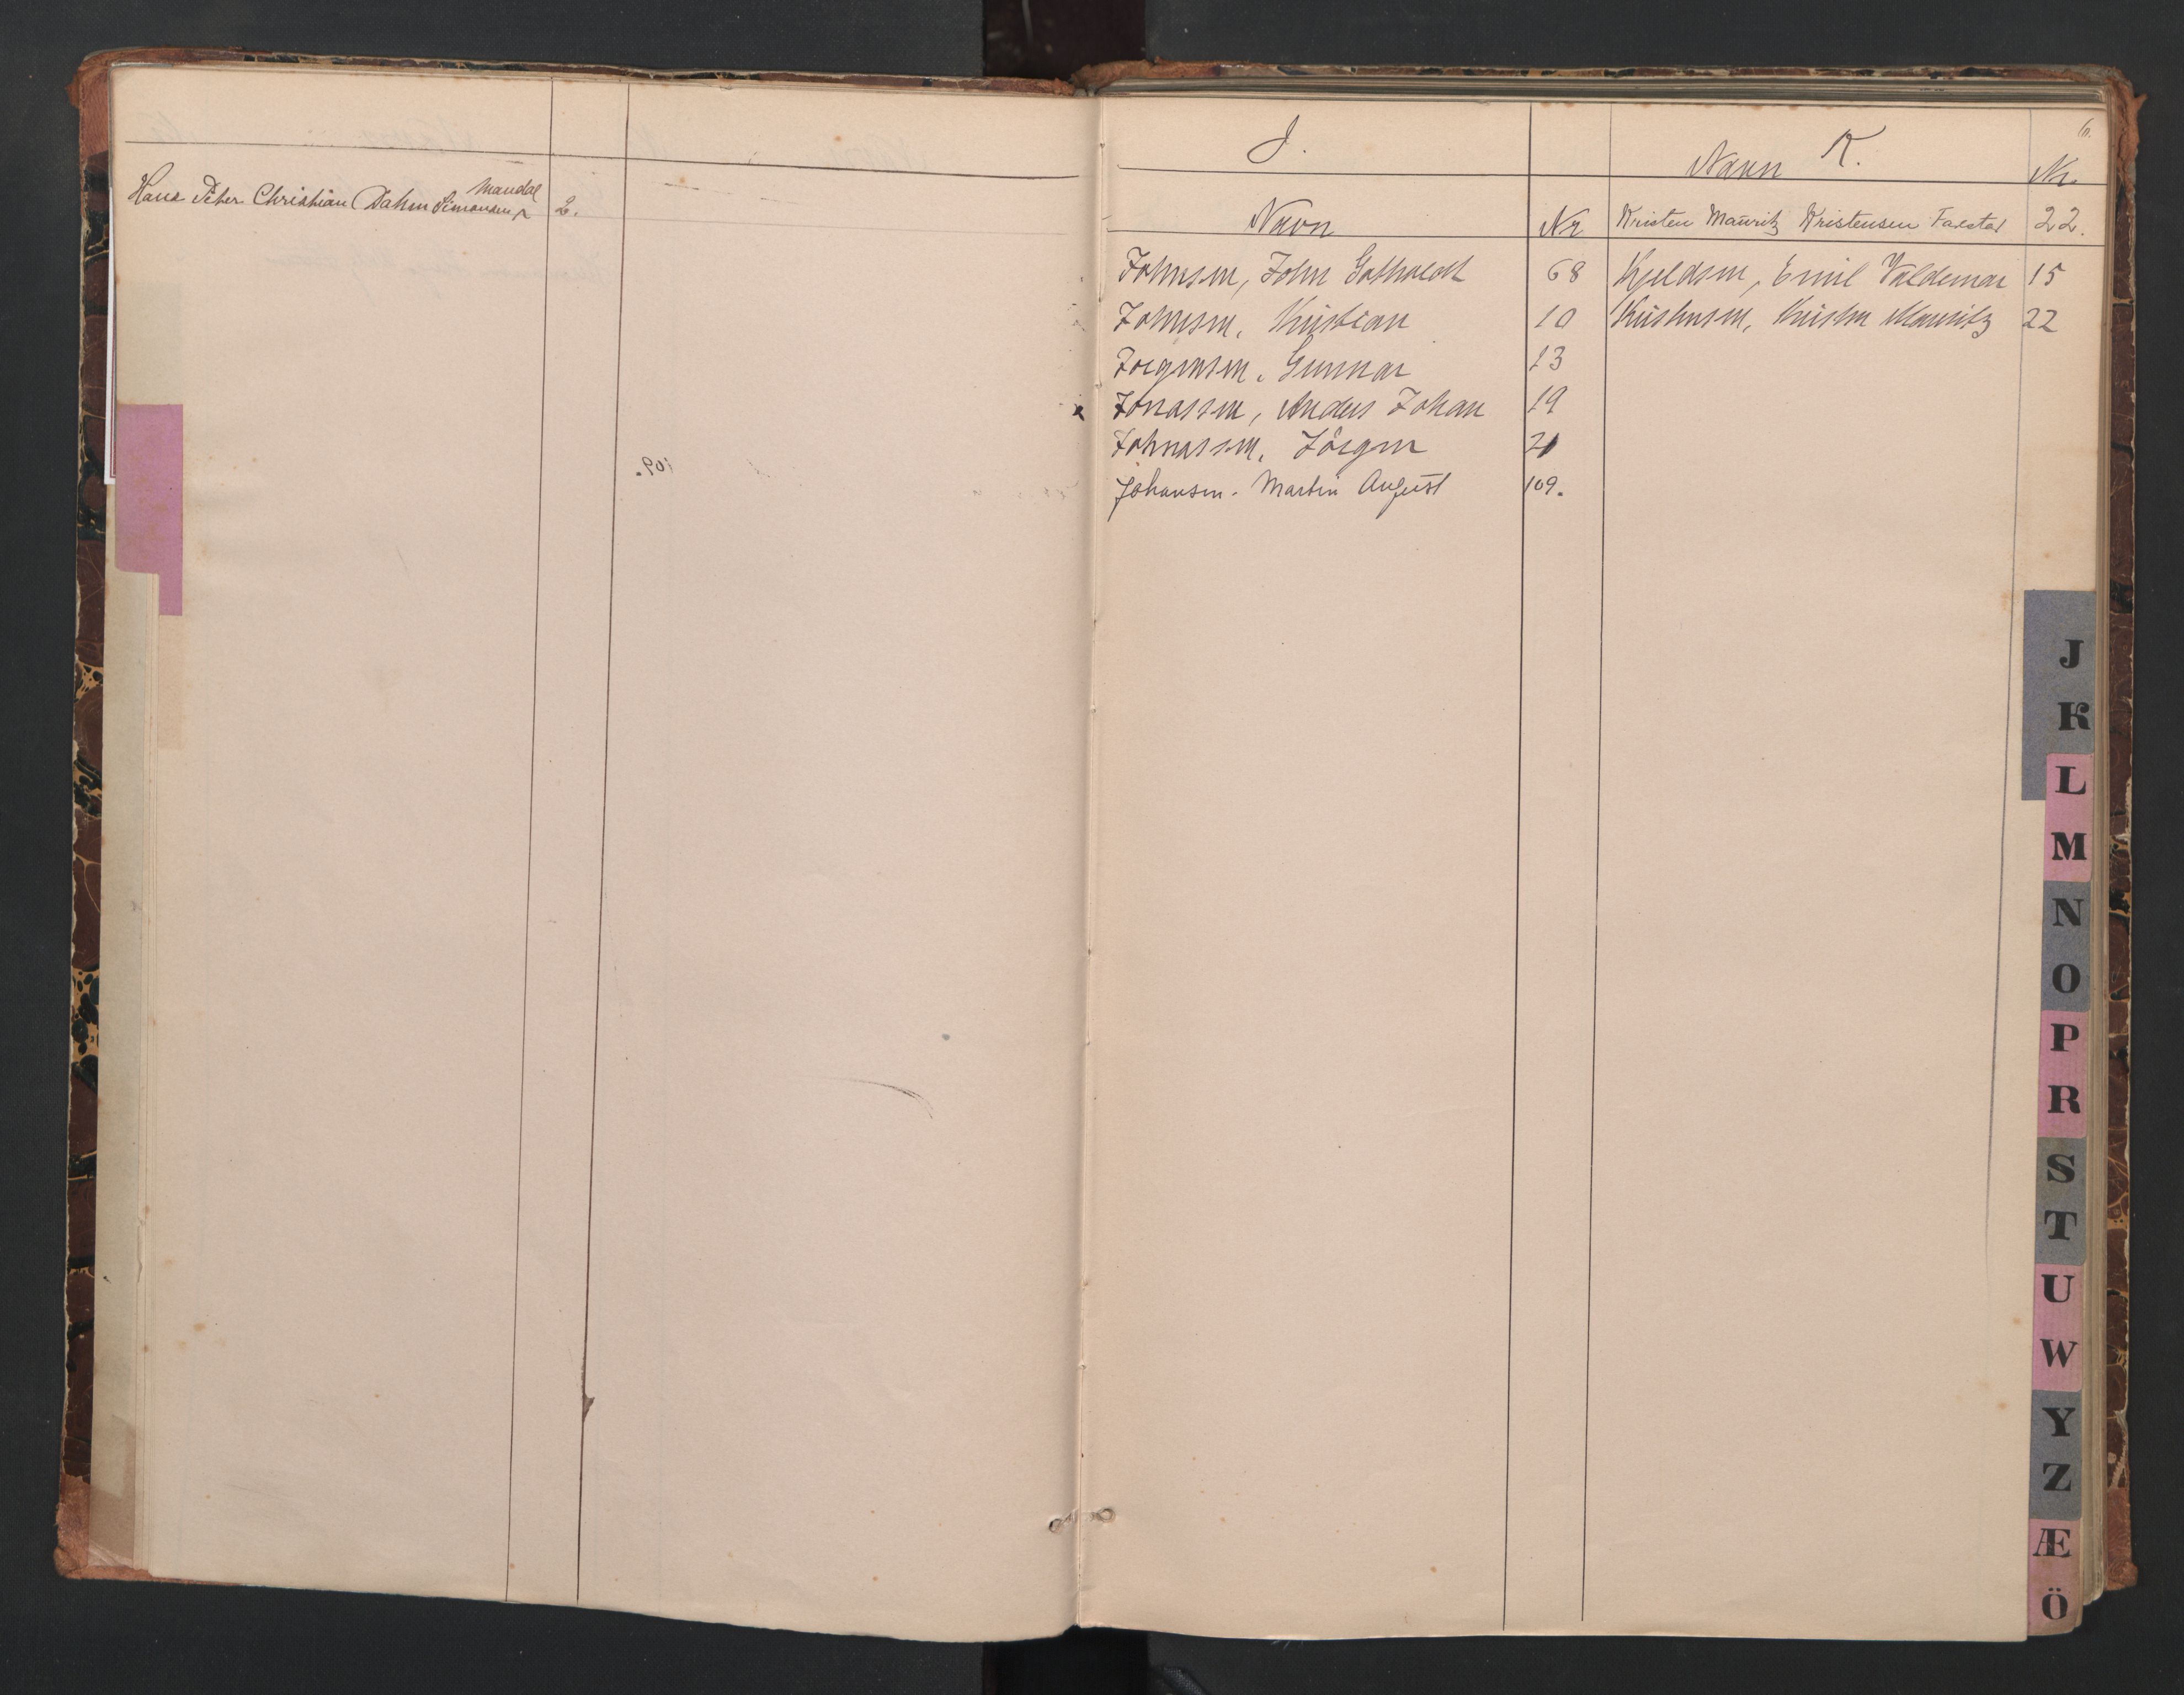 Mandal
Hans Peter Christian Dahm Simonsen 2.
6.
J.
Navn Nr
Johnsen, John Gothardt 68
Johnsen, Kristian 10
Jørgensen, Gunnar 13
Jonassen, Anders Johan 19
Johnassen, Jörgen 21
Johansen. Martin August 109.
K.
Navn Nr.
Kristen Mauritz Kristensen Farstad 22.
Kjeldsen, Emil Valdemar 15
Kristensen, Kristen Mauritz 22
J
K
L
M
N
O
P
R
S
T
U
W
Y
Z
Æ
Ö